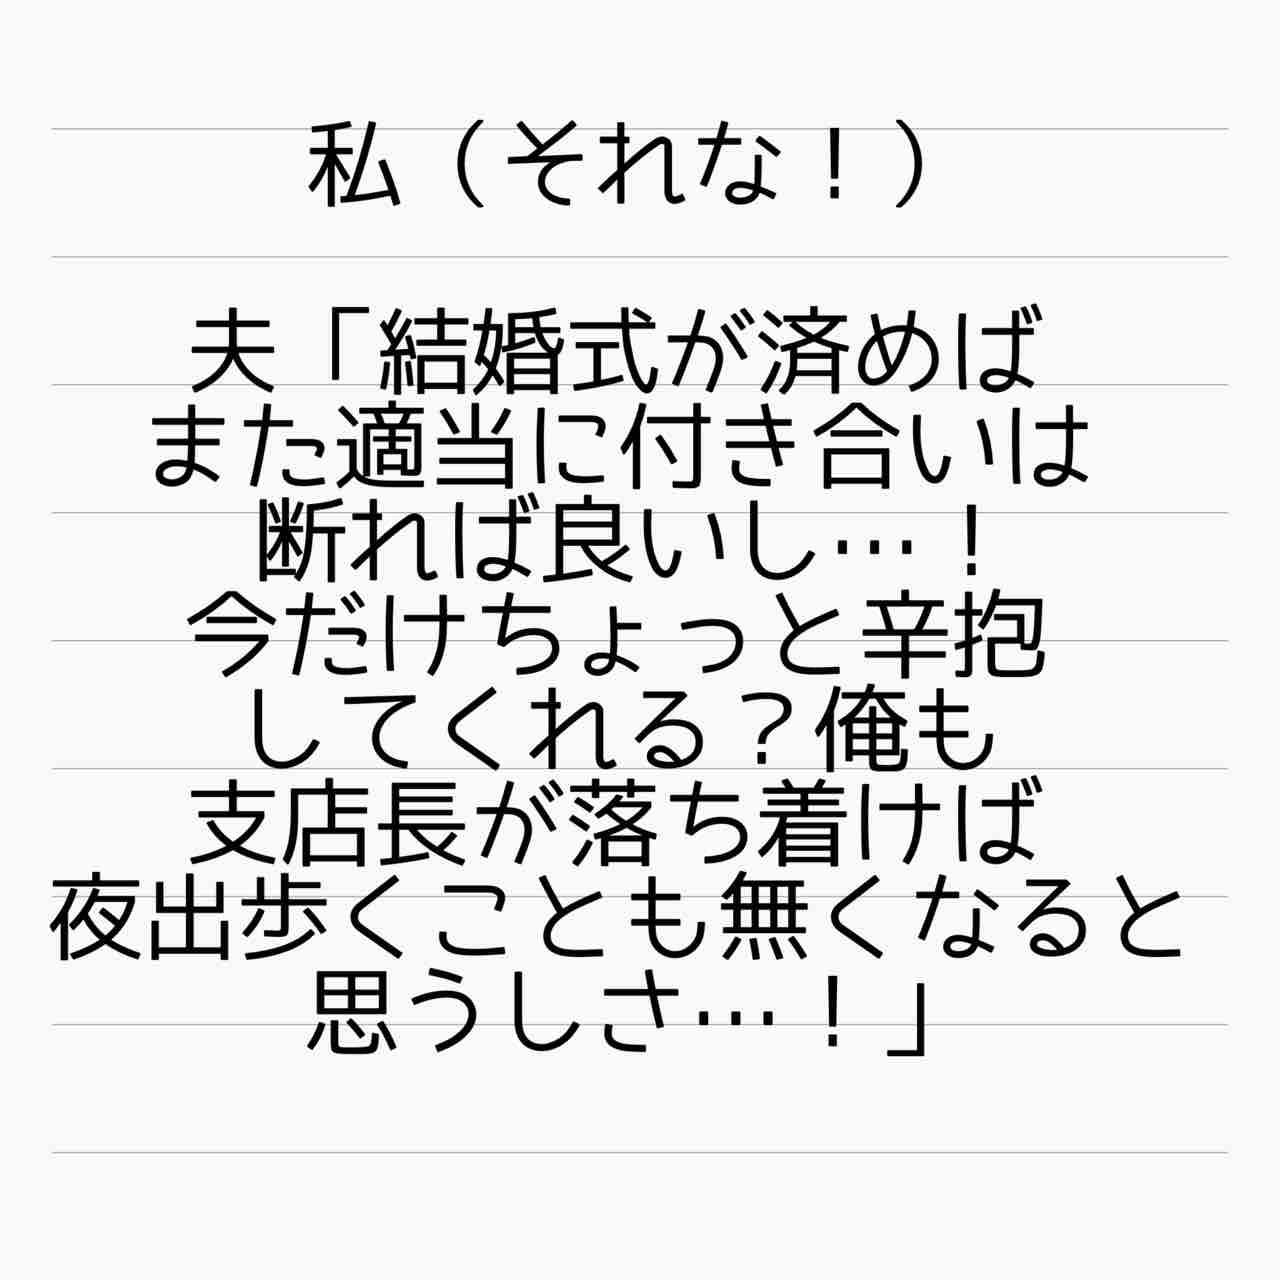 私（それな！）
夫「結婚式が済めば
また適当に付き合いは
断れば良いし…！
今だけちょっと辛抱
してくれる？俺も
支店長が落ち着けば
夜出歩くことも無くなると
思うしさ…！」